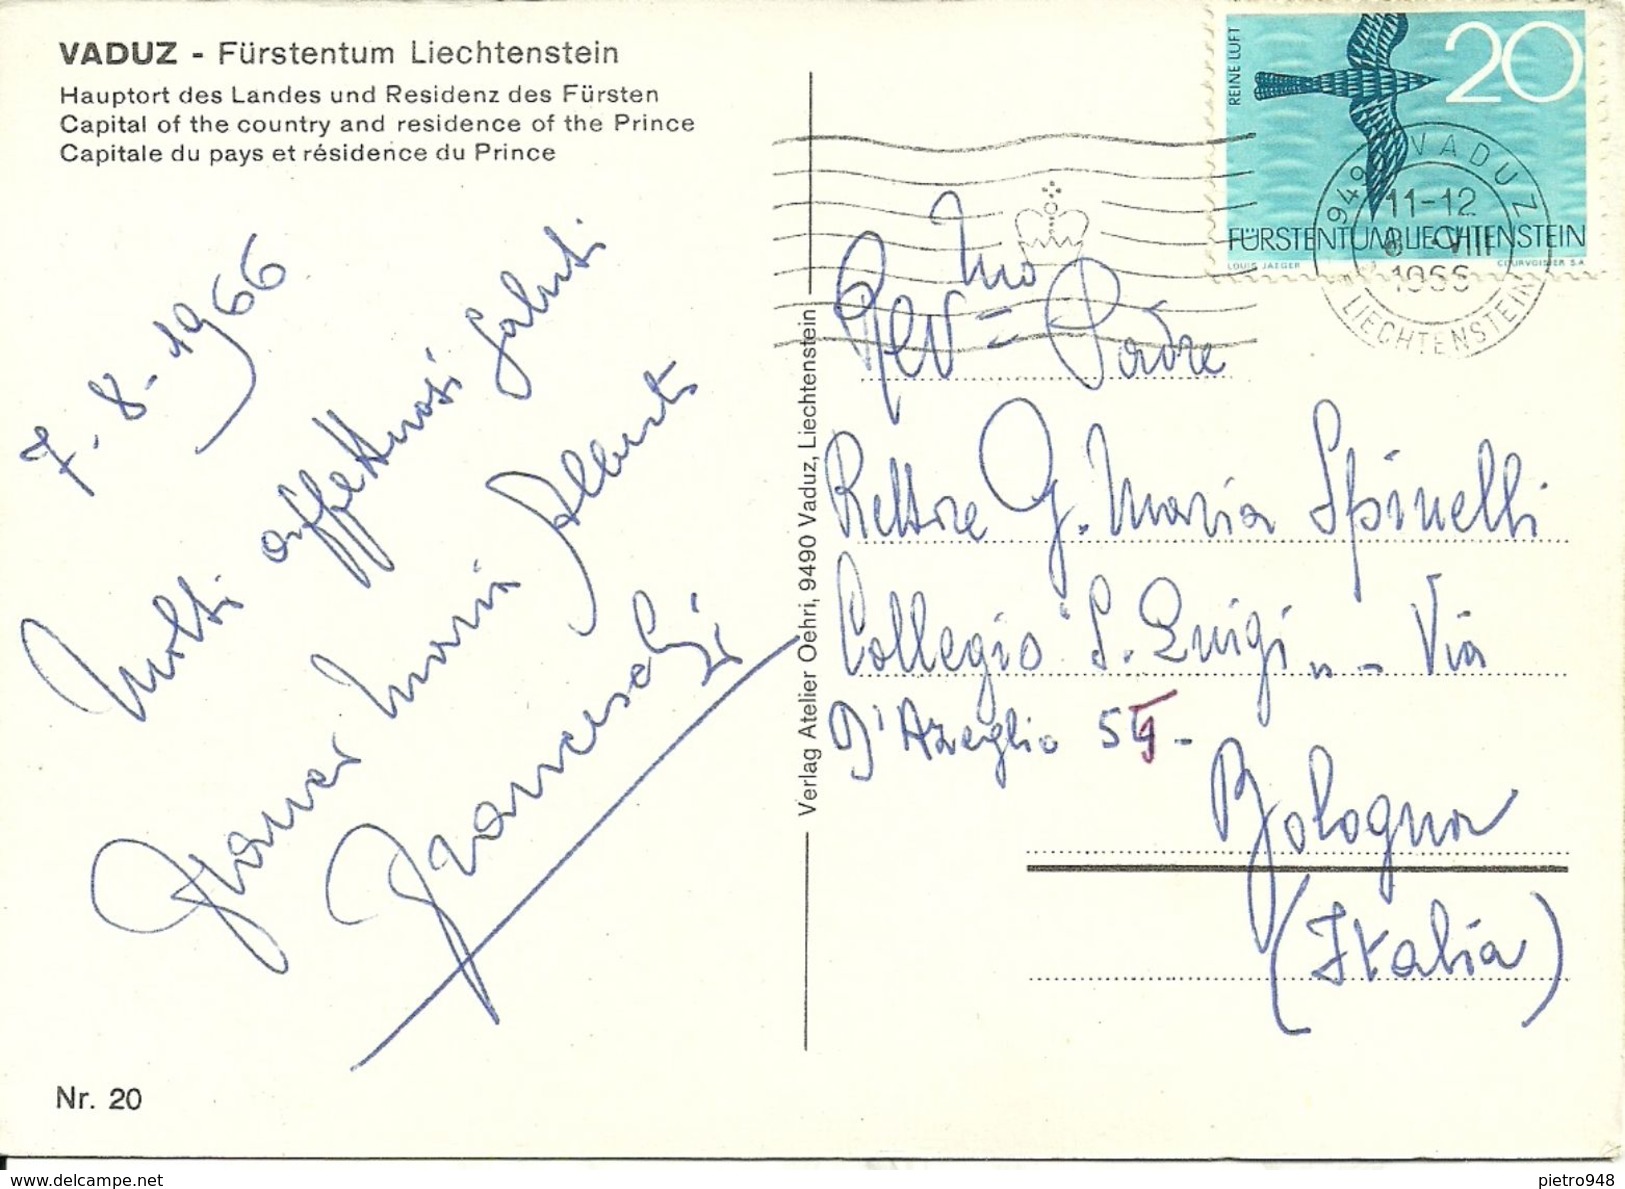 VADUZ - Fürstentum Liechtenstein
Hauptort des Landes und Residenz des Fürsten
Capital of the country and residence of the Prince
Capitale du pays et résidence du Prince
7-8-1966
Molti affettuosi saluti
Maria Alberto
Franceschi
Nr. 20
Verlag Atelier Oehri, 9490 Vaduz, Liechtenstein
REINE LUFT
20
FÜRSTENTUM LIECHTENSTEIN
LOUIS JAEGER COURVOISIER S.A.
9490 VADUZ
11-12
-VIII
1966
LIECHTENSTEIN
Rev mo = Padre
Rettore G. Maria Spinelli
Collegio "S. Luigi" - Via
D'Azeglio 55 -
Bologna
(Italia)
pietro948